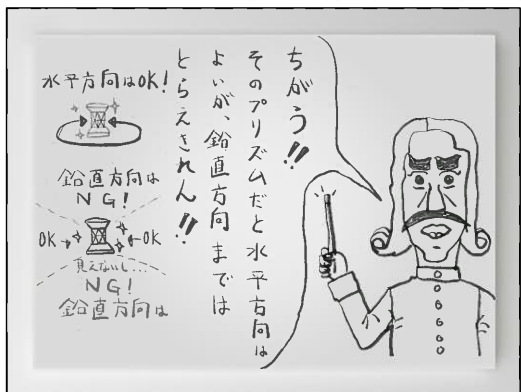 ちがう!!
そのプリズムだと水平方向は
よいが、鉛直方向までは
とらえきれん!!
水平方向はOK!
鉛直方向は
NG!
OK
OK
見えないし…
NG!
鉛直方向は